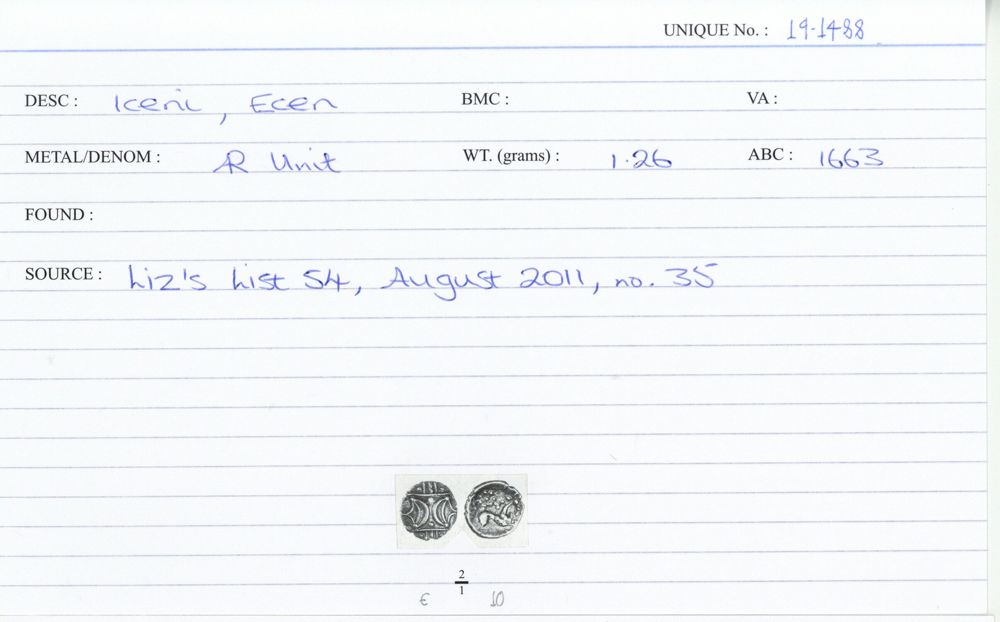 UNIQUE No. : 19-1488
DESC : Iceni, Ecen BMC : VA :
METAL/DENOM : AR Unit WT. (grams) : 1.26 ABC : 1663
FOUND :
SOURCE : Liz's List 54, August 2011, no. 35
2
1
€ 10